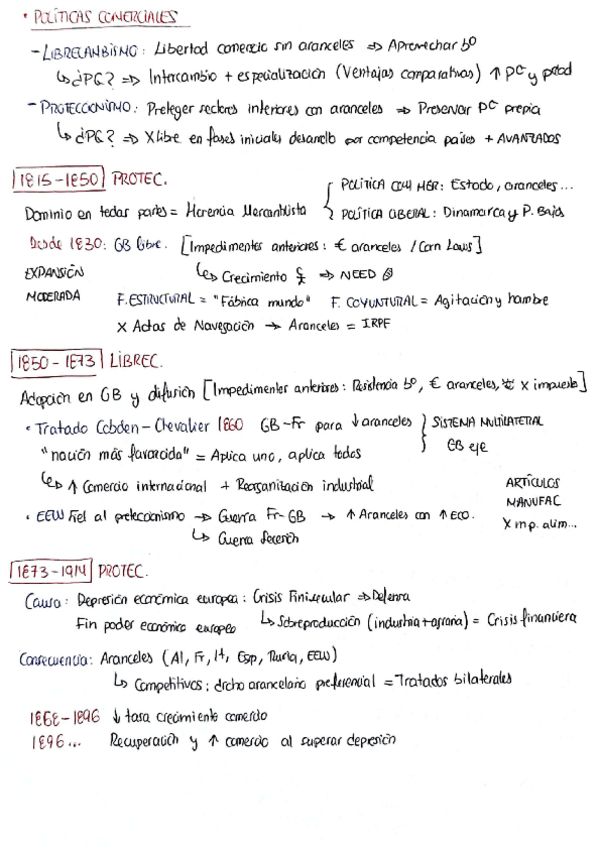 • POLÍTICAS COMERCIALES
- LIBRECAMBISMO: Libertad comercio sin aranceles ⇒ Aprovechar bº
↳ ¿PQ? ⇒ Intercambio + especialización (Ventajas comparativas) ↑ PC y prod
- PROTECCIONISMO: Proteger sectores interiores con aranceles ⇒ Preservar PC propia
↳ ¿PQ? ⇒ X libre en fases iniciales desarrollo por competencia países + AVANZADOS
1815-1850 PROTEC.
Dominio en todas partes = Herencia Mercantilista { POLÍTICA COM MER: Estado, aranceles...
POLÍTICA LIBERAL: Dinamarca y P. Bajos
Desde 1830: GB libre. [Impedimentos anteriores: € aranceles / Corn Laws]
EXPANSIÓN MODERADA
↳ Crecimiento ⇒ NEED
F. ESTRUCTURAL = "Fábrica mundo" F. COYUNTURAL = Agitación y hambre
X Actas de Navegación → Aranceles = IRPF
1850-1873 LIBREC.
Adopción en GB y difusión [Impedimentos anteriores: Residencia bº, € aranceles, X impuesto]
• Tratado Cobden-Chevalier 1860 GB-Fr para ↓ aranceles } SISTEMA MULTILATERAL
"nación más favorecida" = Aplica uno, aplica todos GB eje
↳ ↑ Comercio internacional + Reorganización industrial
• EEUU Fiel al proteccionismo → Guerra Fr-GB → ↑ Aranceles con ↑ ECO.
↳ Guerra Secesión
ARTÍCULOS
MANUFAC
X mp. alim...
1873-1914 PROTEC.
Causa: Depresión económica europea: Crisis Finisecular ⇒ Defensa
Fin poder económico europeo ↳ Sobreproducción (industria + agraria) = Crisis financiera
Consecuencia: Aranceles (Al, Fr, It, Esp, Rusia, EEUU)
↳ Competitivos: drcho arancelario preferencial = Tratados bilaterales
1868-1896 ↓ tasa crecimiento comercio
1896... Recuperación y ↑ comercio al superar depresión